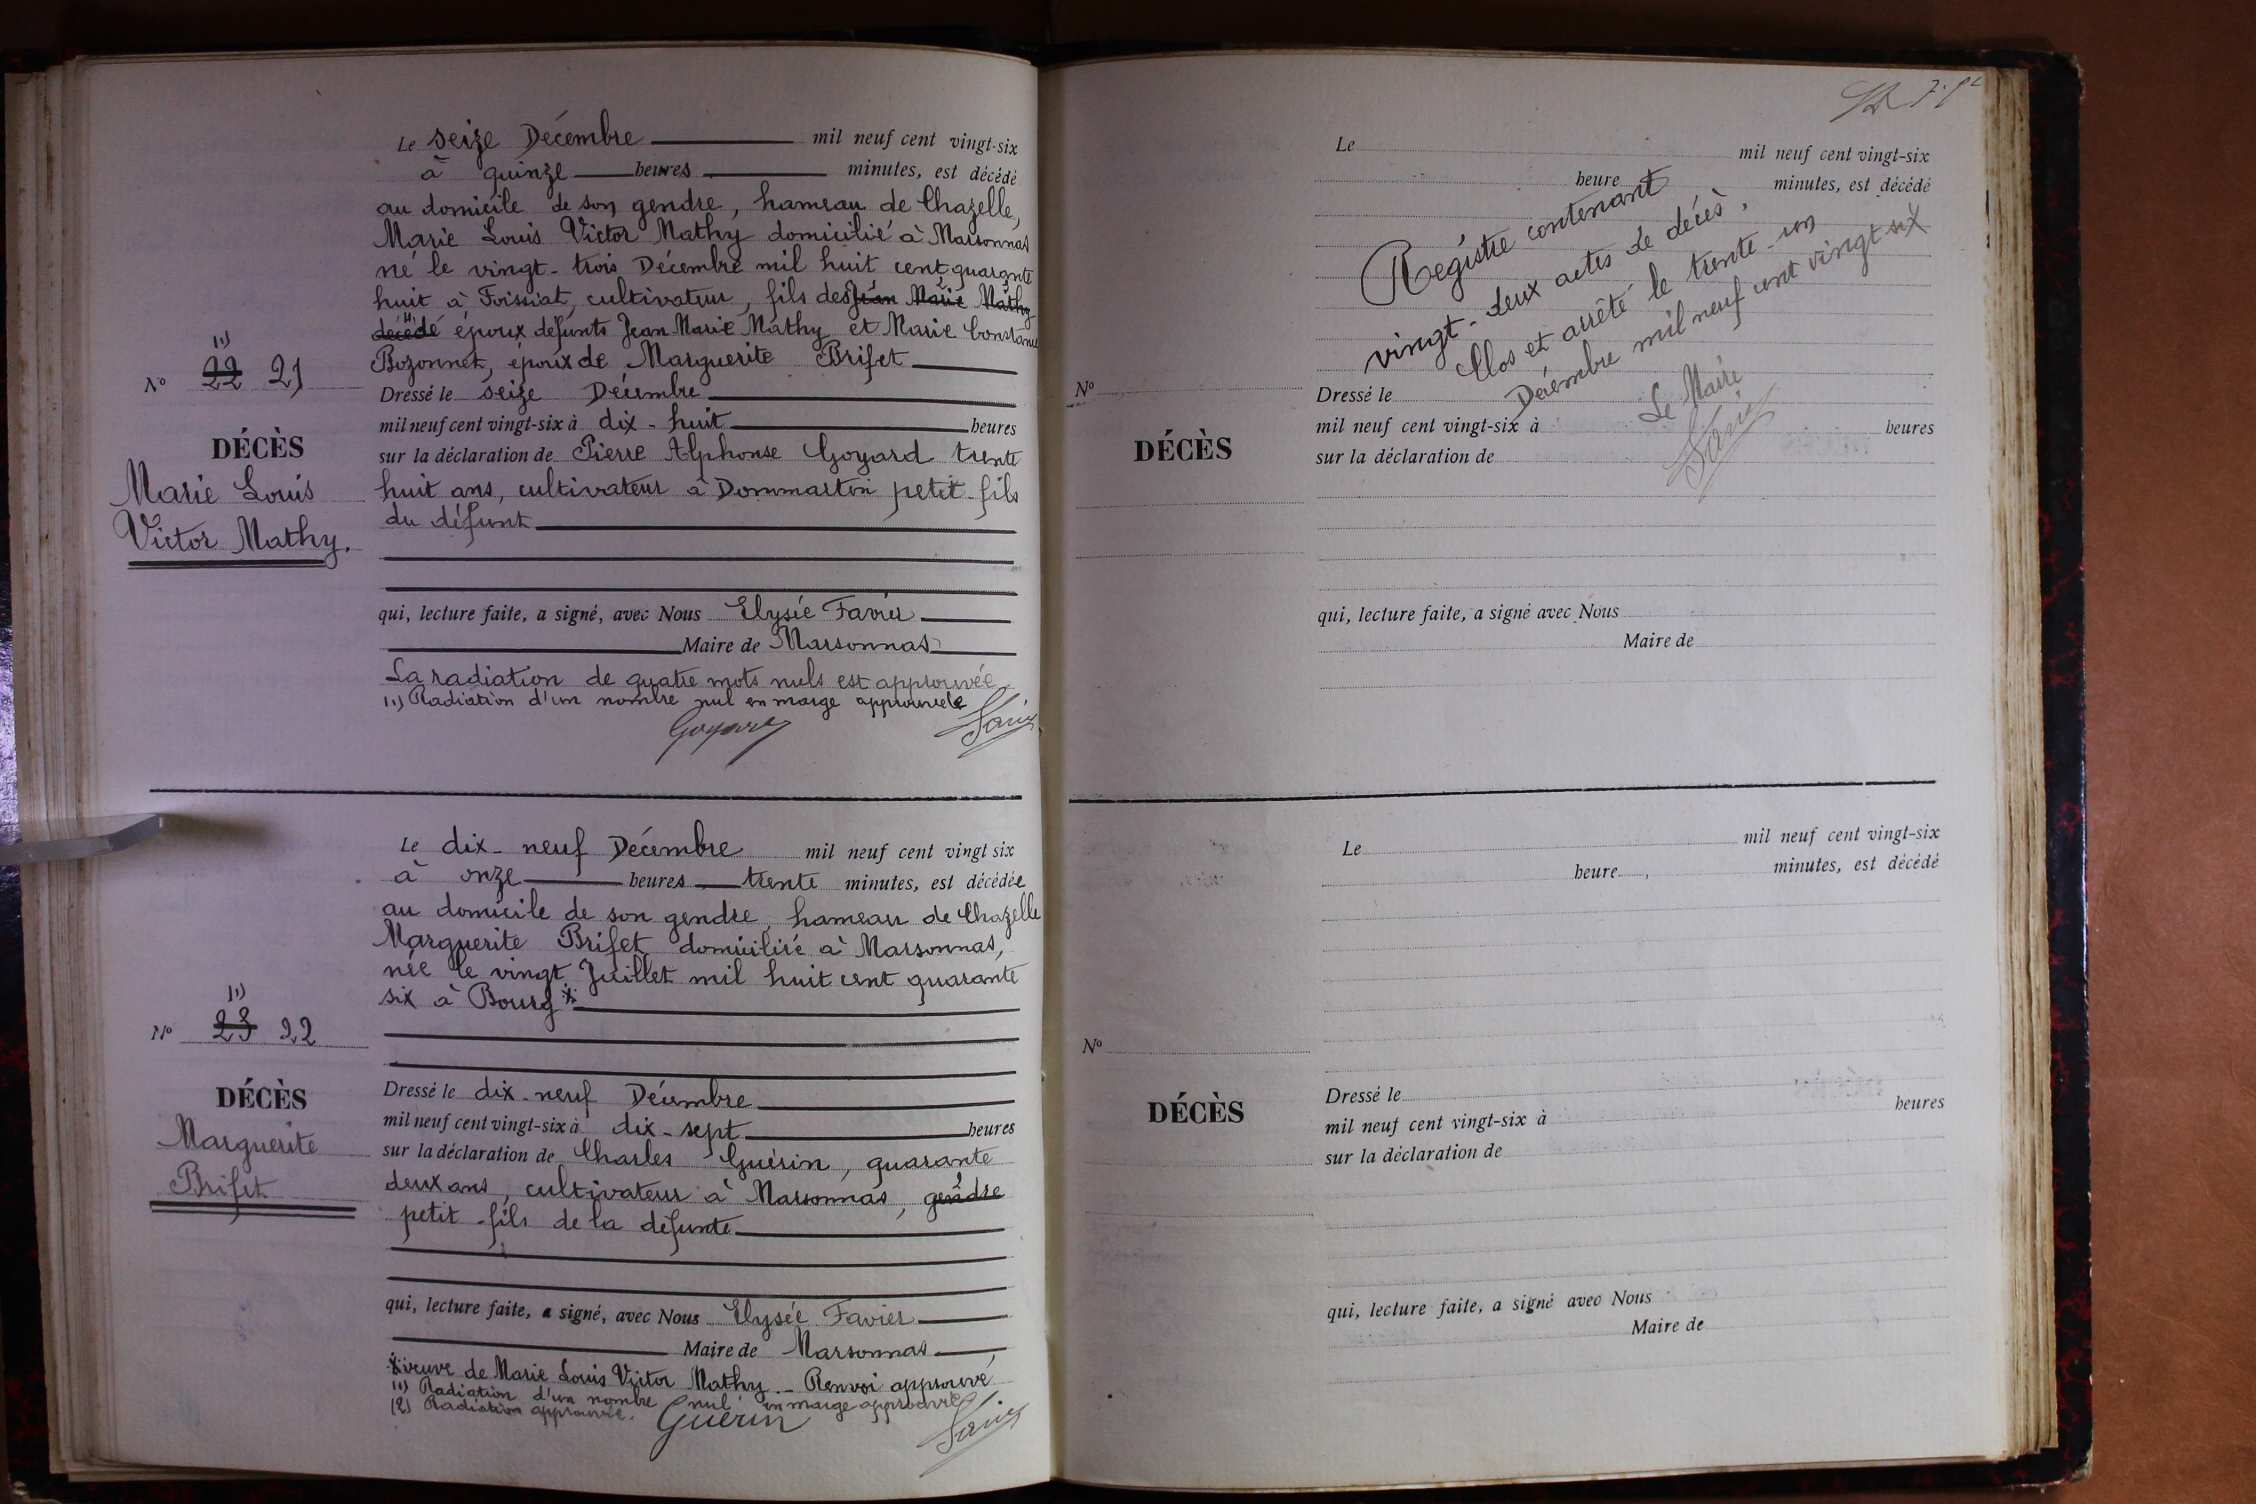 Le seize Décembre mil neuf cent vingt-six
à quinze heures minutes, est décédé
au domicile de son gendre, hameau de Chazelle,
Marie Louis Victor Mathy domicilié à Marsonnas
né le vingt-trois Décembre mil huit cent quarante
huit à Foissiat, cultivateur, fils des Jean Marie Mathy
décédé époux défunts Jean Marie Mathy et Marie Constance
Bozonnet, époux de Marguerite Brifet
(1)
N° 22 21
Dressé le seize Décembre
mil neuf cent vingt-six à dix-huit heures
DÉCÈS
Marie Louis
Victor Mathy.
sur la déclaration de Pierre Alphonse Goyard trente
huit ans, cultivateur à Dommartin petit-fils
du défunt
qui, lecture faite, a signé, avec Nous Elysée Favier
Maire de Marsonnas
La radiation de quatre mots nuls est approuvée
(1) Radiation d'un nombre nul en marge approuvée
Goyard Favier
Le dix-neuf Décembre mil neuf cent vingt six
à onze heures trente minutes, est décédée
au domicile de son gendre, hameau de Chazelle
Marguerite Brifet domiciliée à Marsonnas,
née le vingt Juillet mil huit cent quarante
six à Bourg X
(1)
N° 23 22
DÉCÈS
Marguerite
Brifet
Dressé le dix-neuf Décembre
mil neuf cent vingt-six à dix-sept heures
sur la déclaration de Charles Guérin, quarante
deux ans, cultivateur à Marsonnas, gendre
petit-fils de la défunte
qui, lecture faite, a signé, avec Nous Elysée Favier
Maire de Marsonnas
X veuve de Marie Louis Victor Mathy. - Renvoi approuvé
(1) Radiation d'un nombre nul en marge approuvée
(2) Radiation approuvée.
Guérin Favier
Le mil neuf cent vingt-six
heure minutes, est décédé
Registre contenant
vingt-deux actes de décès.
Clos et arrêté le trente-un
Décembre mil neuf cent vingt six
Le Maire
Favier
N°
DÉCÈS
Dressé le
mil neuf cent vingt-six à heures
sur la déclaration de
qui, lecture faite, a signé avec Nous
Maire de
Le mil neuf cent vingt-six
heure minutes, est décédé
N°
DÉCÈS
Dressé le
mil neuf cent vingt-six à heures
sur la déclaration de
qui, lecture faite, a signé avec Nous
Maire de